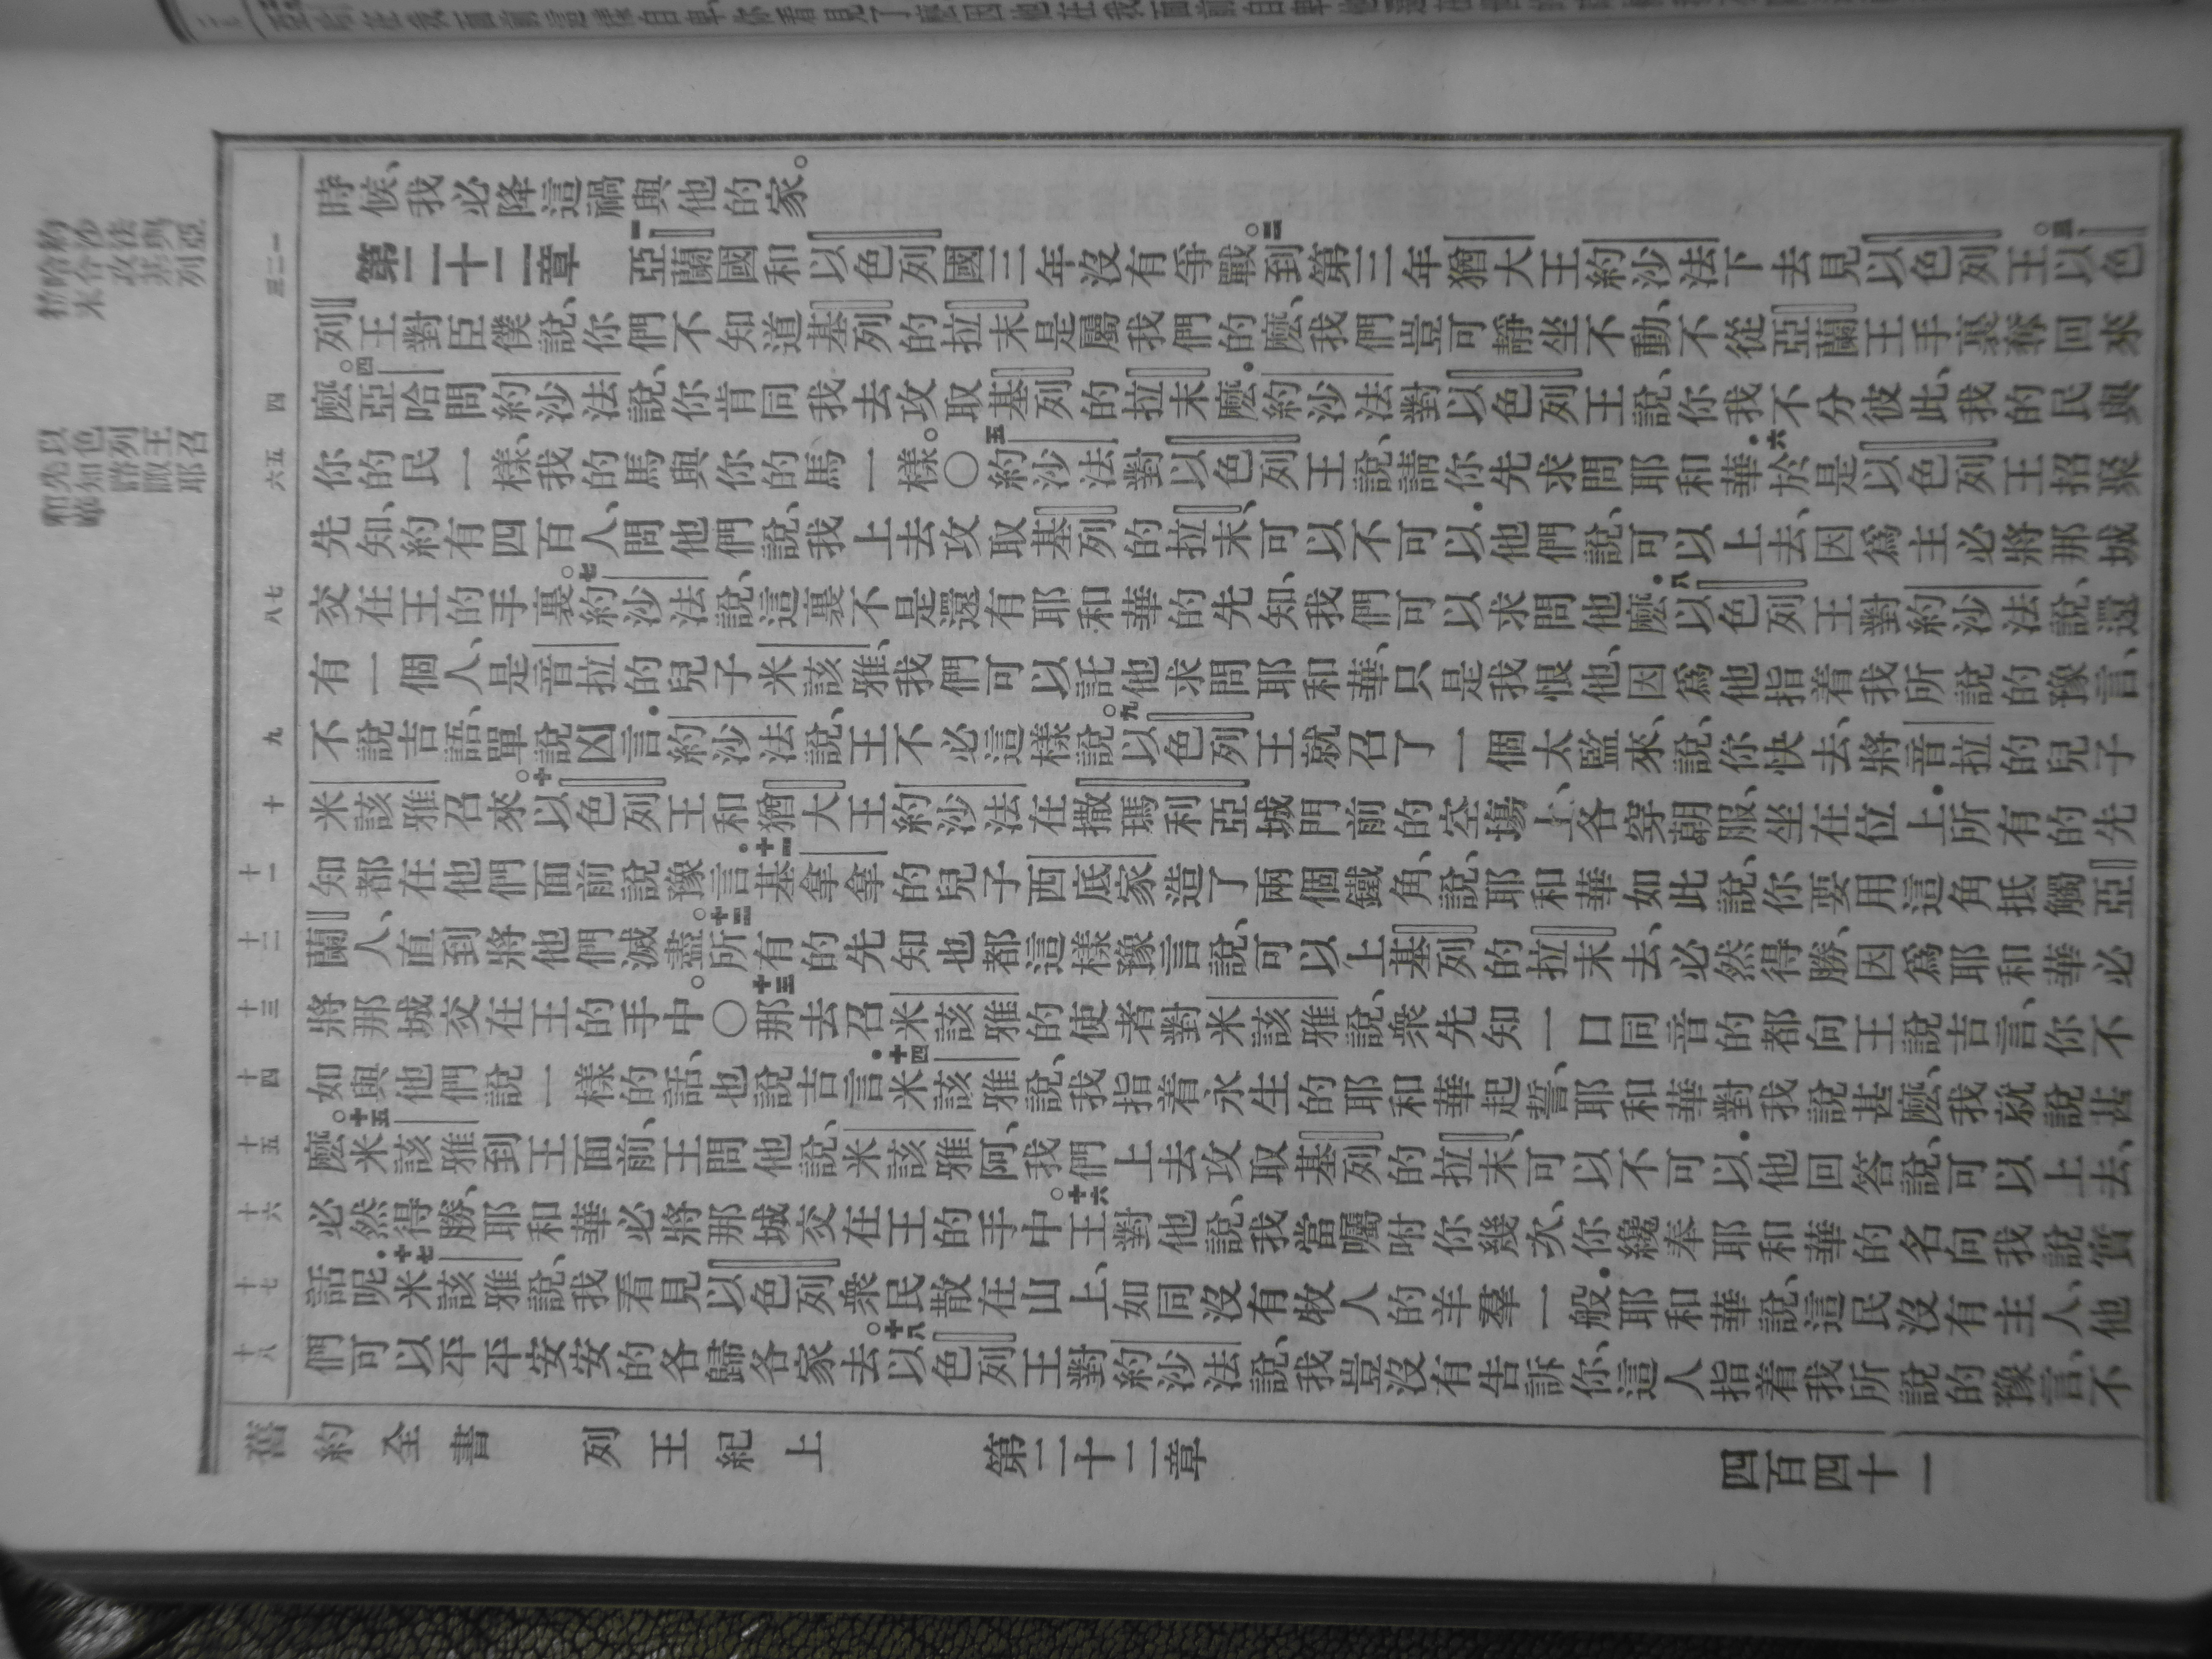 時候、我必降這禍與他的家。
第二十二章 一亞蘭國和以色列國三年沒有爭戰。二到第三年猶大王約沙法下去見以色列王。三以色
列王對臣僕說、你們不知道基列的拉末是屬我們的麼、我們豈可靜坐不動、不從亞蘭王手裏奪回來
麼。四亞哈問約沙法說、你肯同我去攻取基列的拉末麼．約沙法對以色列王說、你我不分彼此、我的民與
你的民一樣、我的馬與你的馬一樣。○五約沙法對以色列王說、請你先求問耶和華．六於是以色列王招聚
先知、約有四百人、問他們說、我上去攻取基列的拉末、可以不可以．他們說、可以上去、因爲主必將那城
交在王的手裏。七約沙法說、這裏不是還有耶和華的先知、我們可以求問他麼．八以色列王對約沙法說、還
有一個人、是音拉的兒子米該雅、我們可以託他求問耶和華、只是我恨他、因爲他指着我所說的豫言、
不說吉語、單說凶言．約沙法說、王不必這樣說。九以色列王就召了一個太監來、說、你快去、將音拉的兒子
米該雅召來。十以色列王和猶大王約沙法在撒瑪利亞城門前的空場上、各穿朝服、坐在位上．所有的先
知都在他們面前說豫言．十一基拿拿的兒子西底家造了兩個鐵角、說、耶和華如此說、你要用這角抵觸亞
蘭人、直到將他們滅盡。十二所有的先知也都這樣豫言說、可以上基列的拉末去、必然得勝、因爲耶和華必
將那城交在王的手中。○十三那去召米該雅的使者對米該雅說、衆先知一口同音的都向王說吉言、你不
如與他們說一樣的話、也說吉言．十四米該雅說、我指着永生的耶和華起誓、耶和華對我說甚麼、我就說甚
麼。十五米該雅到王面前、王問他說、米該雅阿、我們上去攻取基列的拉末、可以不可以．他回答說、可以上去、
必然得勝、耶和華必將那城交在王的手中。十六王對他說、我當囑咐你幾次、你纔奉耶和華的名向我說實
話呢．十七米該雅說、我看見以色列衆民散在山上、如同沒有牧人的羊羣一般．耶和華說、這民沒有主人、他
們可以平平安安的各歸各家去。十八以色列王對約沙法說、我豈沒有告訴你、這人指着我所說的豫言、不
舊約全書 列王紀上 第二十二章 四百四十一